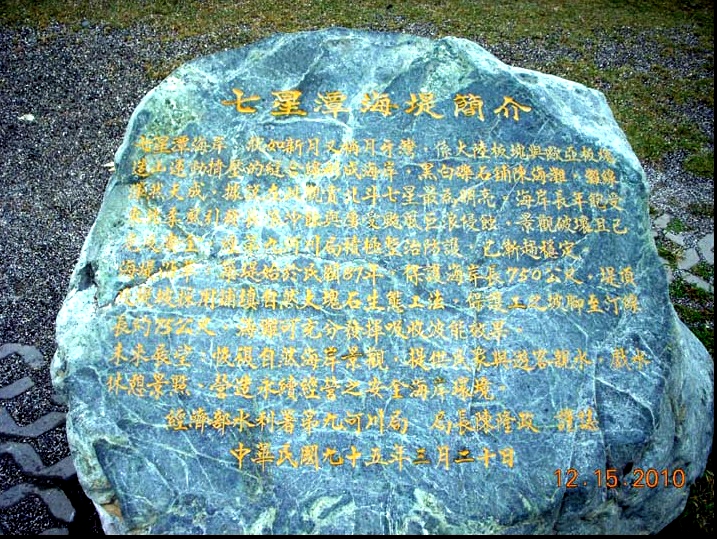 七星潭海堤簡介
七星潭海岸，狀如新月又稱月牙灣，係大陸板塊與歐亞板塊
造山運動擠壓的縫合線形成海岸，黑白礫石鋪陳海灘，
渾然天成。據說在此觀賞北斗七星最為明亮。海岸長年飽受
季風引
巨浪侵蝕，景觀破壞且已
第九河川局積極整治防護，已漸趨穩定。
海堤沿革，海堤始於民國87年，保護海岸長750公尺，堤頂
採用
自然大塊石生態工法，保護工之坡腳至汀線
長約75公尺，海灘可充分發揮吸收波能效果。
未來展望，恢復自然海岸景觀，提供民眾與遊客親水、戲水
休憩景點，營造永續經營之安全海岸環境。
經濟部水利署第九河川局 局長陳隆政 謹誌
中華民國九十五年三月二十日
12.15.2010